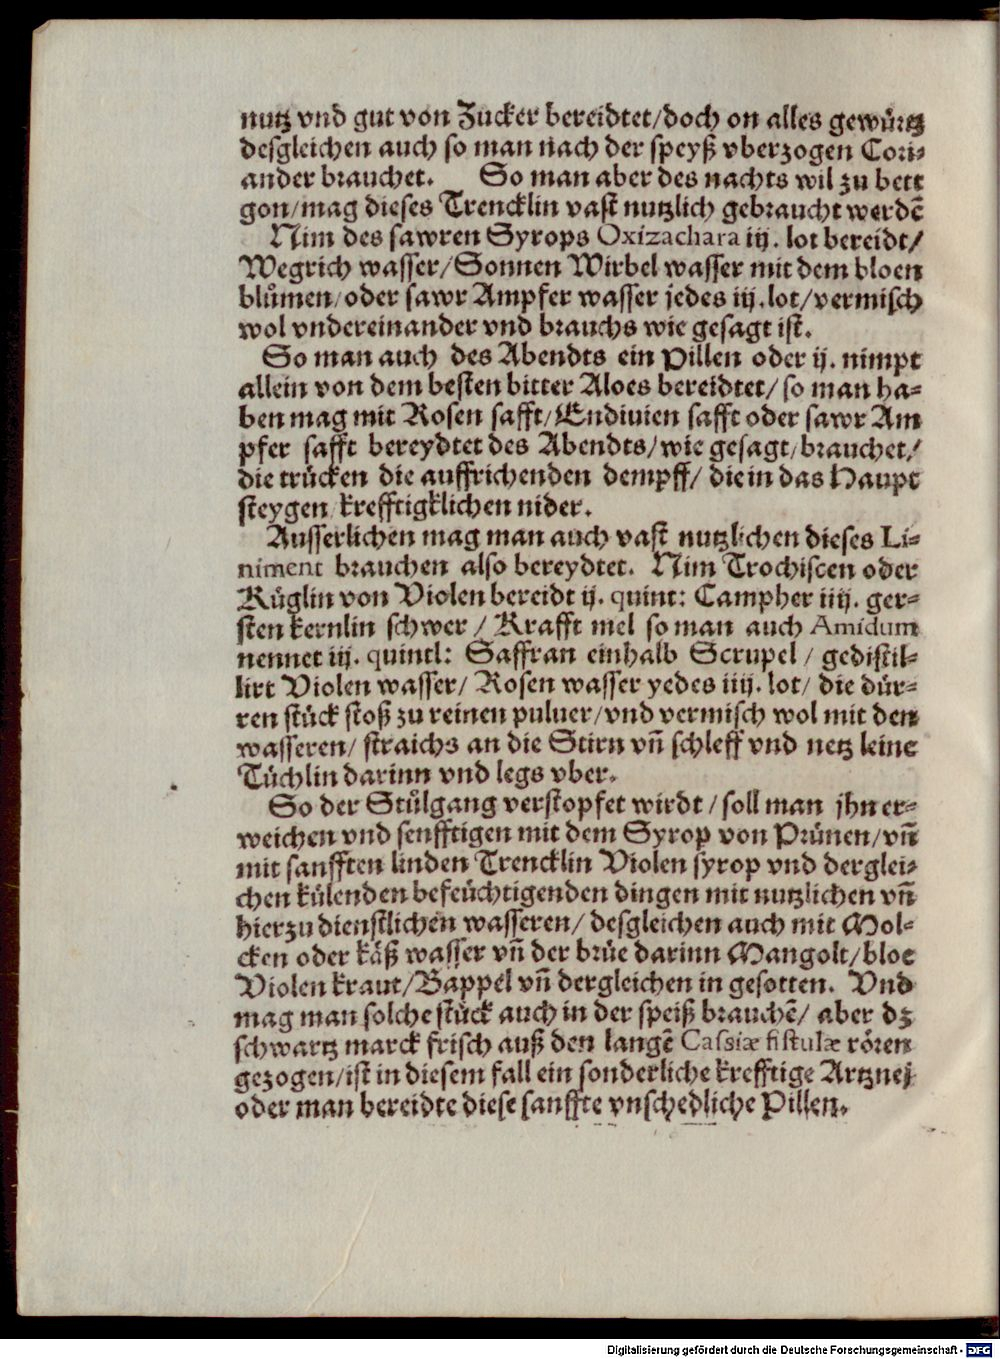 nutz vnd gut von Zucker bereidtet/doch on alles gewürtz
desgleichen auch so man nach der speyß vberzogen Cori-
ander brauchet. So man aber des nachts wil zu bett
gon/mag dieses Trencklin vast nutzlich gebraucht werdē
Nim des sawren Syrops Oxizachara iij. lot bereidt/
Wegrich wasser/Sonnen Wirbel wasser mit dem bloen
blůmen/oder sawr Ampfer wasser jedes iij.lot/vermisch
wol vndereinander vnd brauchs wie gesagt ist.
So man auch des Abendts ein Pillen oder ij. nimpt
allein von dem besten bitter Aloes bereidtet/so man ha-
ben mag mit Rosen safft/Endiuien safft oder sawr Am
pfer safft bereydtet des Abendts/wie gesagt/brauchet/
die trücken die auffrichenden dempff/ die in das Haupt
steygen krefftigklichen nider.
Ausserlichen mag man auch vast nutzlichen dieses Li-
niment brauchen also bereydtet. Nim Trochiscen oder
Küglin von Violen bereidt ij. quint: Campher iiij. ger-
sten kernlin schwer / Krafft mel so man auch Amidum
nennet iij. quintl: Saffran einhalb Scrupel / gedistil-
lirt Violen wasser/ Rosen wasser yedes iiij. lot/ die dür-
ren stück stoß zu reinen puluer/vnd vermisch wol mit den
wasseren/ straichs an die Stirn vñ schleff vnd netz leine
Tüchlin darinn vnd legs vber.
So der Stůlgang verstopfet wirdt / soll man jhn er-
weichen vnd senfftigen mit dem Syrop von Prünen/vñ
mit sanfften linden Trencklin Violen syrop vnd derglei-
chen külenden befeüchtigenden dingen mit nutzlichen vñ
hierzu dienstlichen wasseren/ desgleichen auch mit Mol-
cken oder käß wasser vñ der brüe darinn Mangolt/bloe
Violen kraut/Bappel vñ dergleichen in gesotten. Vnd
mag man solche stück auch in der speiß brauchē/ aber dz
schwartz marck frisch auß den langē Cassiæ fistulæ rören
gezogen/ist in diesem fall ein sonderliche krefftige Artznej
oder man bereidte diese sanffte vnschedliche Pillen.
Digitalisierung gefördert durch die Deutsche Forschungsgemeinschaft - DFG